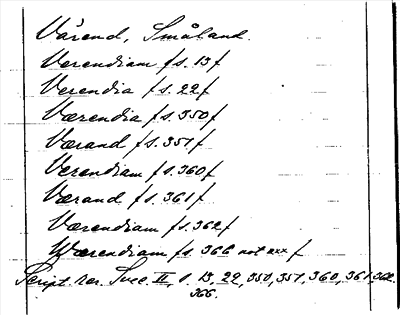 Värend, Småland.
Verendiam /s. 13/
Verendia /s. 22/
Værendia /s. 350/
Værand /s. 351/
Verendiam /s. 360/
Værand /s. 361/
Værendiam /s. 362/
Wærendiam /s. 366 not xxx/
Script. rer. Svec. II, s. 13, 22, 350, 351, 360, 361, 362,
366.